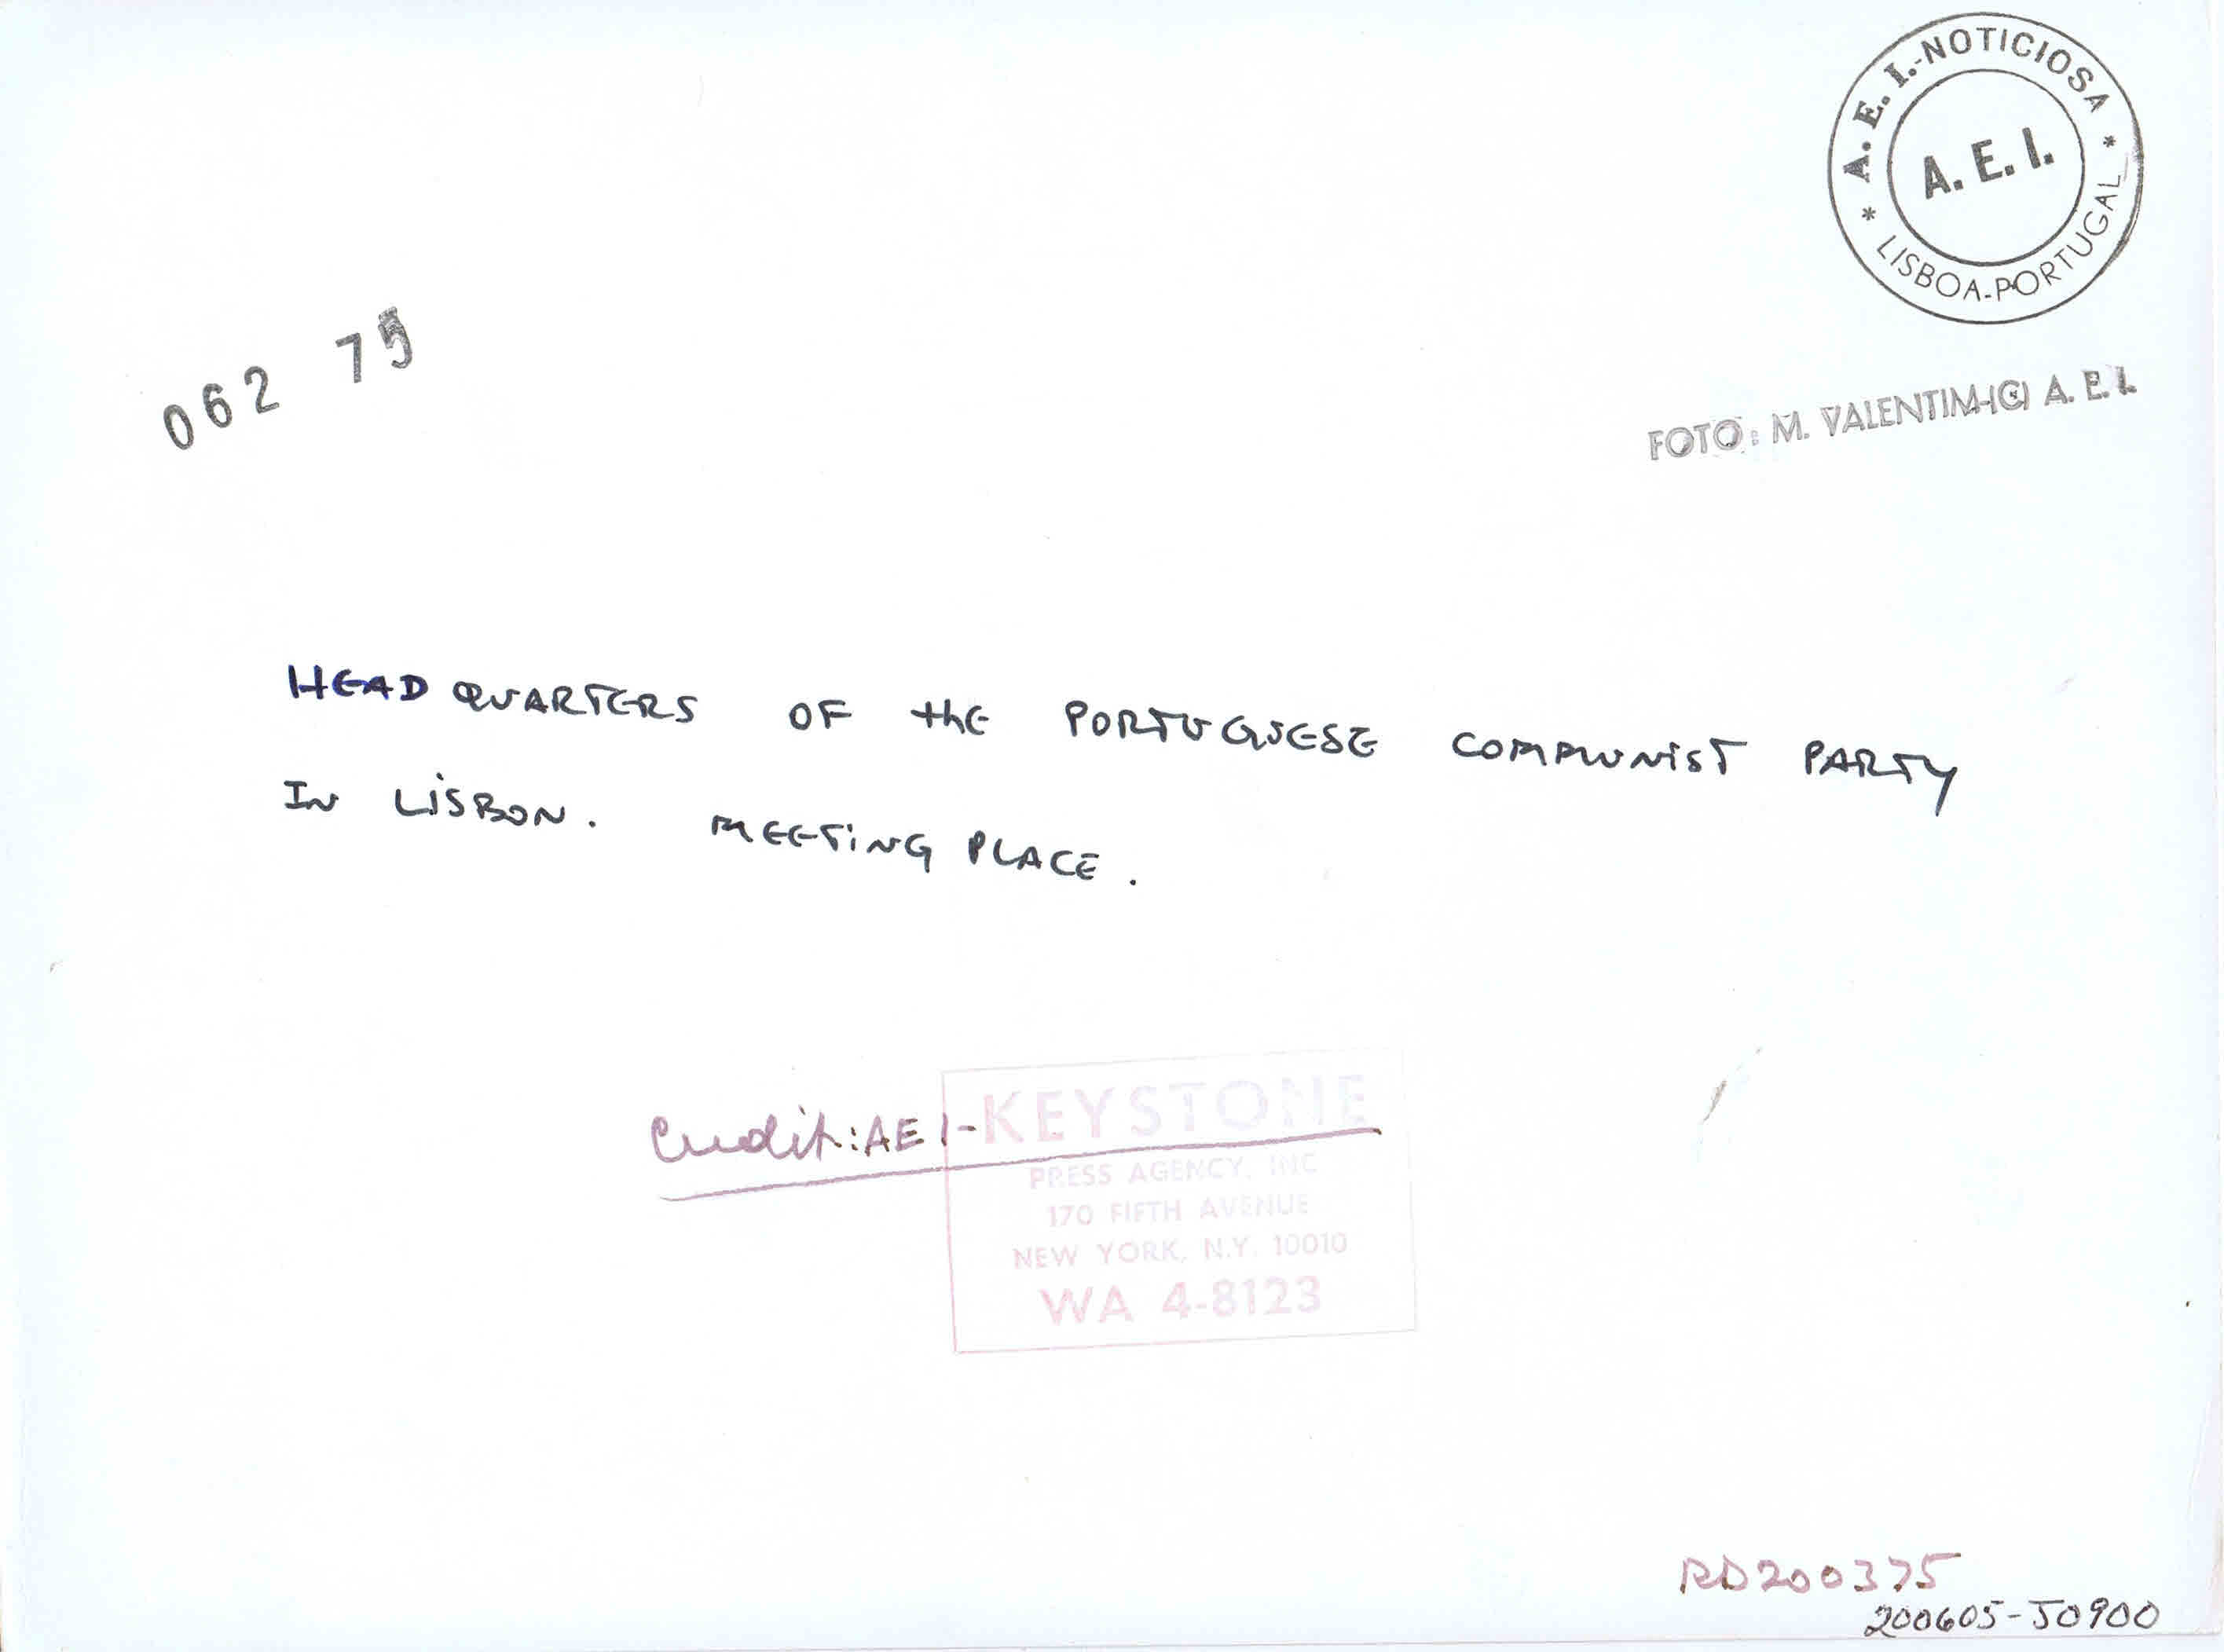 A. E. I.-NOTICIOSA
A. E. I.
* LISBOA-PORTUGAL *
062 75
FOTO: M. VALENTIM-(C) A. E. I.
HEAD QUARTERS OF the PORTUGUESE COMMUNIST PARTY
IN LISBON. MEETING PLACE.
Credit: AEI-KEYSTONE
PRESS AGENCY, INC
170 FIFTH AVENUE
NEW YORK, N.Y. 10010
WA 4-8123
RD200375
200605-J0900